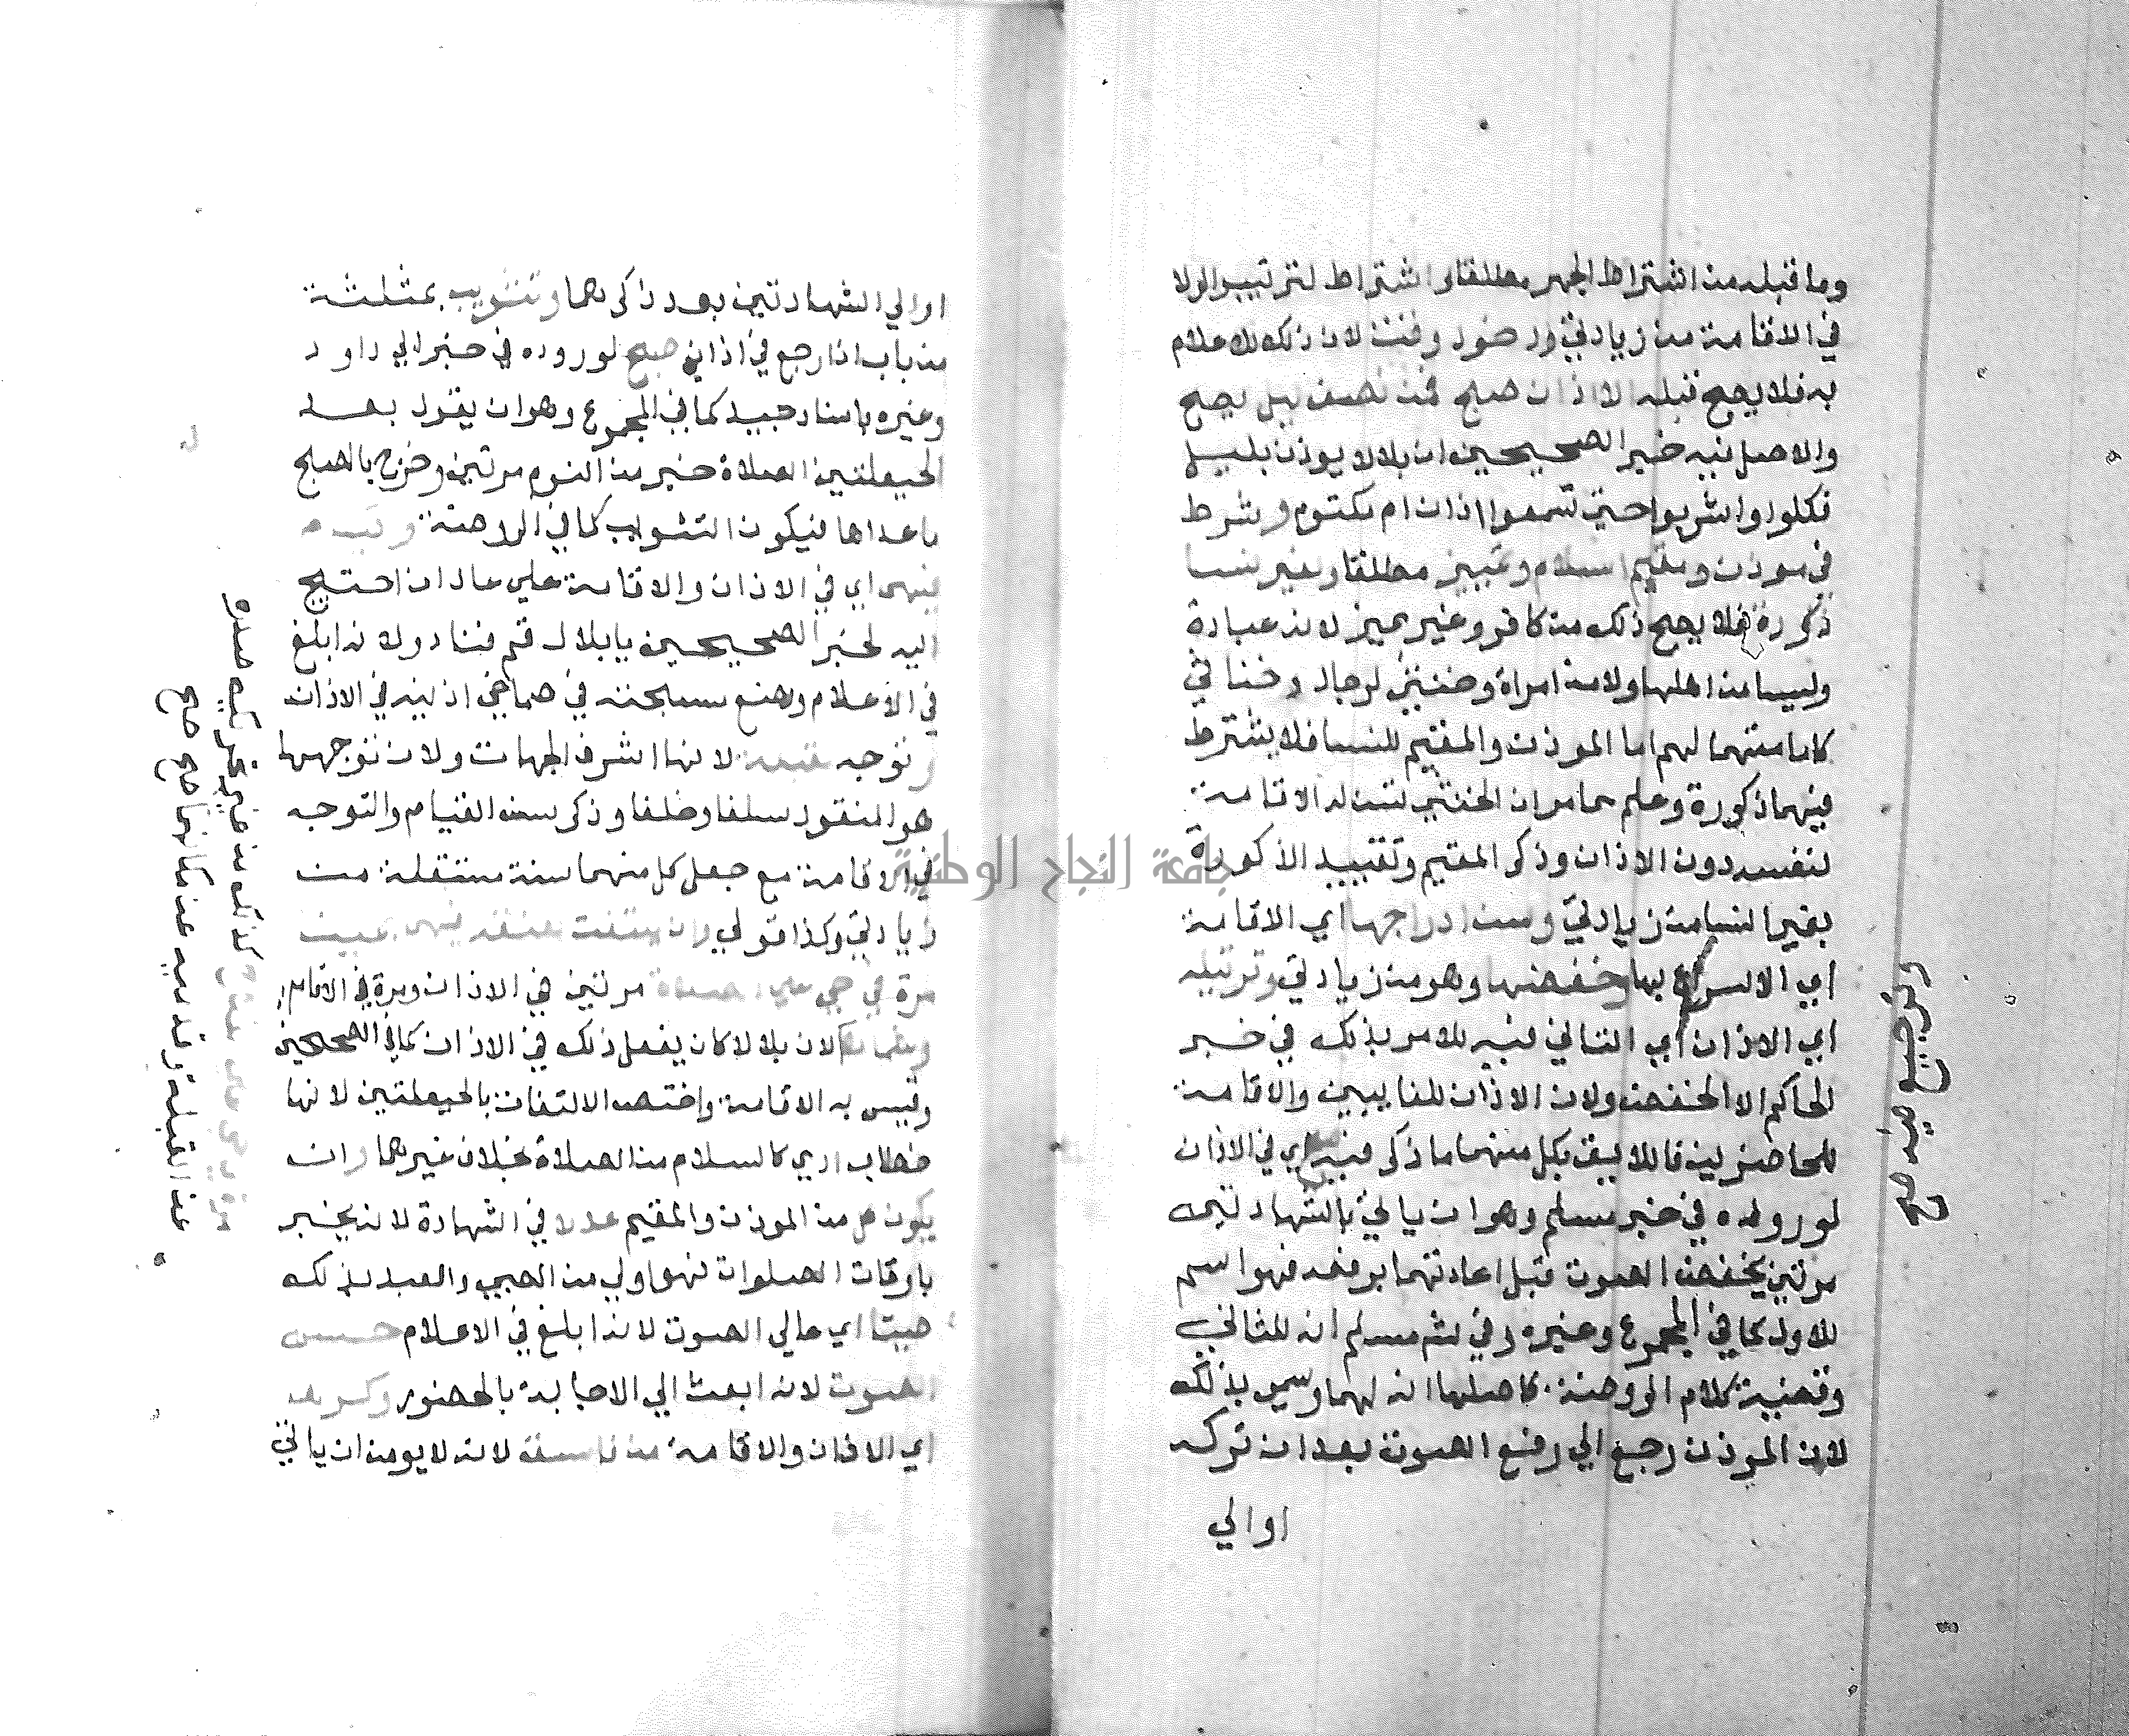 وما قبله من اشتراط الجهر مطلقا واشتراط الترتيب والولا
في الاقامة من زيادتي ودخول وقت لان ذلك للاعلام
به فلا يصح قبله الا اذان صبح فمن نصف ليل يصح
والاصل فيه خبر الصحيحين ان بلالا يوذن بليل
فكلوا واشربوا حتي تسمعوا اذان ام مكتوم وشرط
في موذن ومقيم اسلام وتمييز مطلقا ولغير نسا
ذكورة فلا يصح ذلك من كافر وغير مميز لانه عبادة
وليسا من اهلها ولا من امراة وخنثي لرجال وخناثي
كامامتهما لهم اما الموذن والمقيم للنسا فلا يشترط
فيهما ذكورة وعلم مما مر ان الخنثي تسن له الاقامة
لنفسه دون الاذان وذكر المقيم وتقييد الذكورة
بغير النسا من زيادتي وسن ادراجها اي الاقامة
اي الاسراع بها وخفضها وهو من زيادتي وترتيله
اي الاذان اي التاني فيه للامر بذلك في خبر
الحاكم الا الخفض ولان الاذان للغايبين والاقامة
للحاضرين فاللايق بكل منهما ما ذكر فيه اي في الاذان
لوروده في خبر مسلم وهو ان ياتي بالشهادتين
مرتين بخفض الصوت قبل اعادتهما برفعه فهو اسم
للاول كما في المجموع وغيره وفي شم مسلم انه للثاني
وقضية كلام الروضة كاصلها انه لهما وسمي بذلك
لان الموذن رجع الي رفع الصوت بعد ان تركه
اوالي
والترجيع فيه صح
اوالي الشهادتين بعد ذكرهما وتثويب بمثلثة
من باب اذا رجع في اذان صبح لوروده في خبر ابي داود
وغيره باسناد جيد كما في المجموع وهو ان يقول بعد
الحيعلتين الصلاة خير من النوم مرتين وخرج بالصبح
ما عداها فيكون التثويب كما في الروضة وقيام
فيهما اي في الاذان والاقامة علي عال ان احتيج
اليه لخبر الصحيحين يا بلال قم فناد ولانه ابلغ
في الاعلام ووضع سبحته في صماخي اذنيه في الاذان
وتوجه لقبلة لانها اشرف الجهات ولان توجهها
هو المنقول سلفا وخلفا وذكر سن القيام والتوجه
في الاقامة مع جعل كل منهما سنة مستقلة من
زيادتي وكذا قولي وان يلتفت بعنقه فيهما يمينا
مرة في حي علي الصلاة مرتين في الاذان ومرة في الاقامة
وشمالا لان بلالا كان يفعل ذلك في الاذان كما في الصحيحين
وقيس به الاقامة واختص الالتفات بالحيعلتين لانها
خطاب ادمي كالسلام من الصلاة بخلاف غيرهما وان
يكون كل من الموذن والمقيم عدلا في الشهادة لانه يخبر
باوقات الصلوات فهو اولي من الصبي والعبد بذلك
صيتا اي عالي الصوت لانه ابلغ في الاعلام حسن
الصوت لانه ابعث الي الاجابة بالحضور وكرها
اي الاذان والاقامة من فاسق لانه لا يومن ان ياتي
عن القبلة وقدميه عن مكانهما صح صح